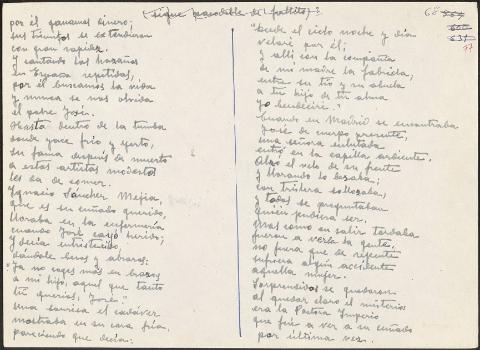 (sigue pasodoble de Gallito):
68
17
por él ganamos dinero;
sus triunfos se extendieron
con gran rapidez
Y cantando las hazañas
en España repetidas,
por él buscamos la vida
y nunca se nos olvida
el pobre José.
Hasta dentro de la tumba
donde yace frío y yerto,
su fama después de muerto
a estos artistas modestos
les da de comer.
Ignacio Sánchez Mejía,
que es su cuñado querido,
lloraba en la enfermería
cuando José cayó herido;
y decía entristecido,
dándole besos y abrazos:
"Ya no coges más en brazos
a mi hijo, aquel que tanto
tú querías, José."
Una sonrisa el cadáver
mostraba en su cara fría,
pareciendo que decía:
"Desde el cielo noche y día
velaré por él;
y allí con la compañía
de mi madre la Gabriela,
entre su tío y su abuela
a tu hijo de tu alma
Yo bendeciré."
Cuando en Madrid se encontraba
José de cuerpo presente,
una señora enlutada
entró en la capilla ardiente.
Alzó el velo de su frente
y llorando lo besaba;
con tristeza sollozaba,
y todos se preguntaban
quién pudiera ser.
Mas como en salir tardaba
fueron a verla la gente,
no fuera que de repente
sufriera algún accidente
aquella mujer.
Sorprendidos se quedaron
al quedar claro el misterio:
era la Pastora Imperio
que fué a ver a su cuñado
por última vez.